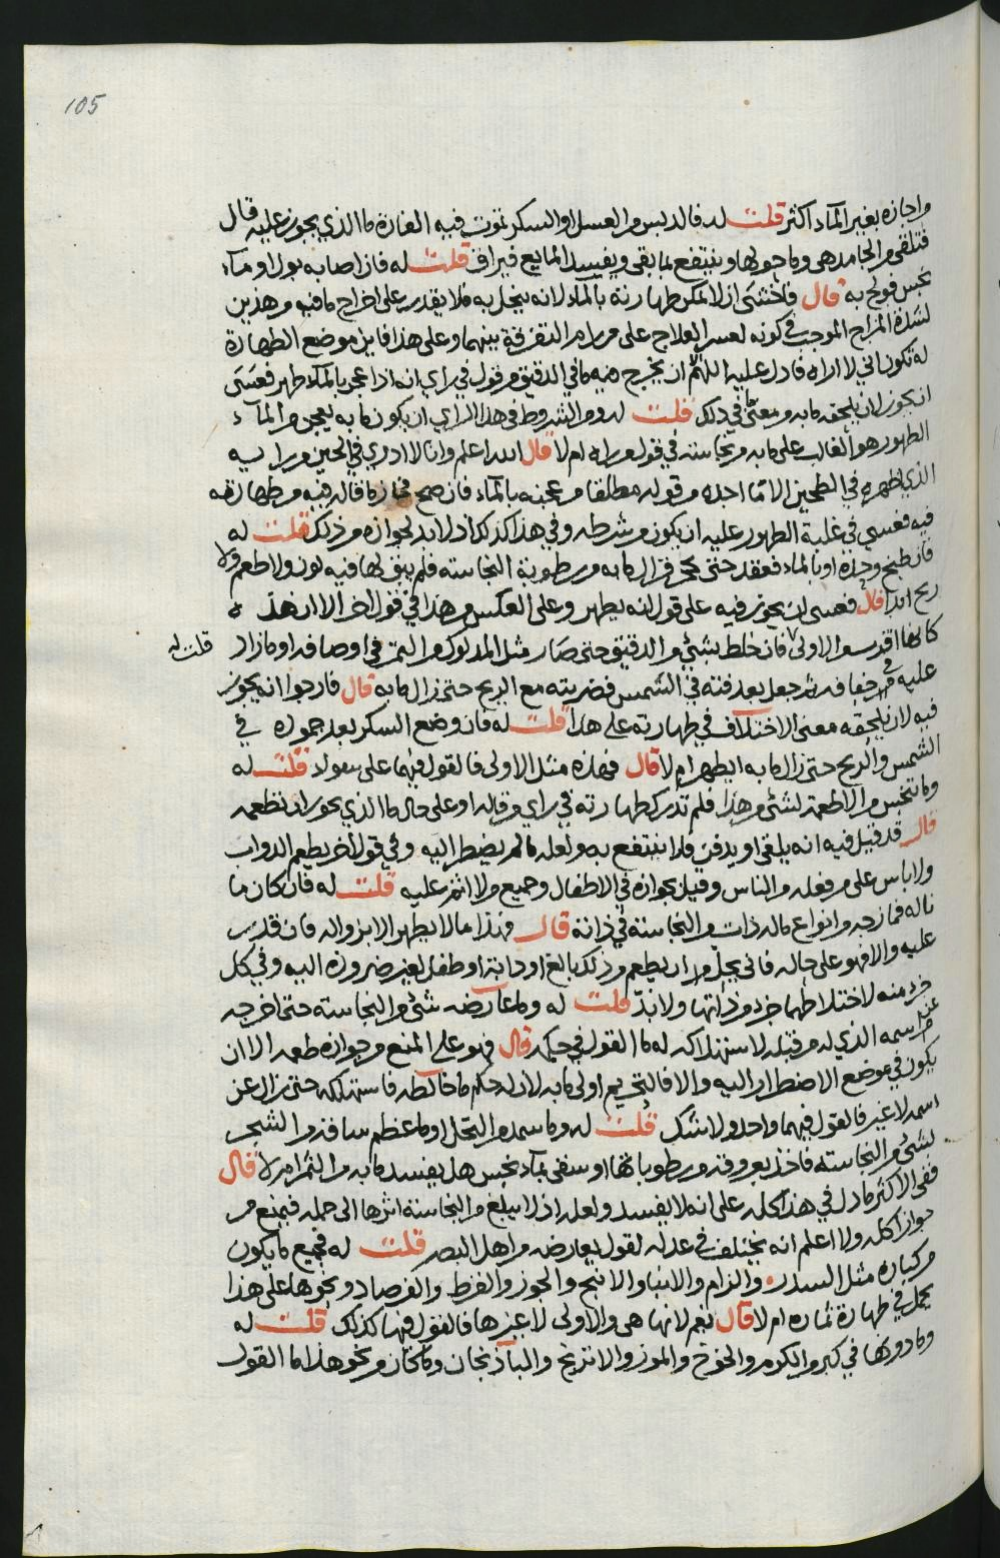 105
واجازه بغير الماء اكثر قلت له فالدبس والعسل او السكر تموت فيه الفارة ما الذي يجوز عليه قال
فتلقى من الجامد هي وما حولها وينتفع بما بقي ويفسد المايع فيراق قلت له فان اصابه بول او ماء
نجس فولج به قال فاخشى ان لا يمكن طهارته بالماء لانه ينحل به فلا يقدر على اخراج ما فيه من هذين
لشدة المزاج الموجب في كونه لعسر العلاج على من رام التفرقة بينهما وعلى هذا فاين موضع الطهارة
له تكون اني لا اراه فادل عليه اللهم ان يخرج فيه ما في الدقيق من قول في راي انه اذا عجن بالماء طهر فعسى
ان يجوز لان يلحقه ما به من معنى في ذلك قلت له ومن الشروط في هذا الراي ان يكون ما به يعجن من الماء
الطهور هو الغالب على ما به من نجاسته في قول من راه ام لا قال الله اعلم وانا لا ادري في الحين من رايه
الذي اظهره في الطحين الا ما اجده من قوله مطلقا من عجنه بالماء فان صح فجاز ما قاله فيه من طهارته
فيه فعسى في غلبة الطهور عليه ان يكون من شرطه وفي هذا كذلك اذ لا بد لجوازه من ذلك قلت له
فان طبخ وحده او بالماء فعقد حتى يخرج فزال ما به من رطوبة النجاسته فلم يبق لها فيه لون ولا طعم ولا
ريح ابدا قال فعسى ان يجوز فيه على قول انه يطهر وعلى العكس من هذا في قول اخر الا ان هذه
كانها اقدر من الاولى فان خلط بشئ من الدقيق حتى صار مثل المدلوك من التمر في اوصافه او ما زاد قلت له
عليه في جفافه ثم جعل بعد فته في الشمس فضربته مع الريح حتى زال ما به قال فارجوا انه يجوز
فيه لان يلحقه معنى الاختلاف في طهارته على هذا قلت له فان وضع السكر بعد جموده في
الشمس والريح حتى زال ما به ايطهر ام لا قال فهذه مثل الاولى فالقول فيهما على سواء قلت له
وما تنجس من الاطعمة لشئ من هذا فلم تدرك طهارته في راي من قاله او على حال ما الذي يجوز ان نطعمه
قال قد قيل فيه انه يلقى او يدفن فلا ينتفع به ولعله ما لم يضطر اليه وفي قول اخر يطعم الدواب
ولا باس على من فعله من الناس وقيل بجوازه في الاطفال وجميع من لا اثم عليه قلت له فان كان ما
ناله فمازجه من انواع ماله ذات من النجاسته في ذاته قال فهذا مما لا يطهر الا بزواله فان قدر
عليه والا فهو على حاله فاني يحل من ان يطعم من ذلك بالغ او دابة او طفل لغير ضرورة اليه وفي كل
جزء منه لاختلاطهما جزء من ذاتها ولا بد قلت له وما عارضه شئ من النجاسته حتى اخرجه
عن اسمه الذي له من قبله لاستهلاكه له ما القول في حكمه قال فهو على المنع من جوازه طعمه الا ان
يكون في موضع الاضطرار اليه والا فالتحريم اولى ما به لان له حكم ما خالطه فاستهلكه حتى زال عن
اسمه لا غير فالقول فيهما واحد ولا شك قلت له وما سمد من النخل او ما عظم ساقه من الشجر
لشئ من النجاسته فاخذ بعروقه من رطوباتها او سقي بماء نجس هل يفسد ما به من الثمر ام لا قال
ففي الاكثر ما دل في هذا كله على انه لا يفسد ولعله اذ لا يبلغ من النجاسة اثرها الى حمله فيمنع من
جواز اكله ولا اعلم انه يختلف في عدله لقول يعارضه من اهل البصر قلت له فجميع ما يكون
من كباره مثل السدره والزام والانبا والانبج والجوز والقرط والفرصاد ونحوها على هذا
يحمل في طهارة ثماره ام لا قال نعم لانها هي والاولى لا غيرها فالقول فيها كذلك قلت له
وما دونها في كبر من الكرم والخوخ والموز والاترنج والباذنجان وما كان من نحو هذا ما القول